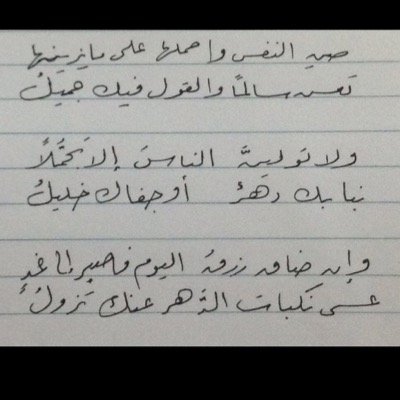 صن النفس واحملها على ما يزينها
تعش سالماً والقول فيك جميلُ
ولا تولينَّ الناسَ إلا تجمُّلاً
نبا بك دهرٌ أو جفاك خليلُ
وإن ضاق رزقُ اليوم فاصبر إلى غدٍ
عسى نكبات الدَّهر عنك تزولُ